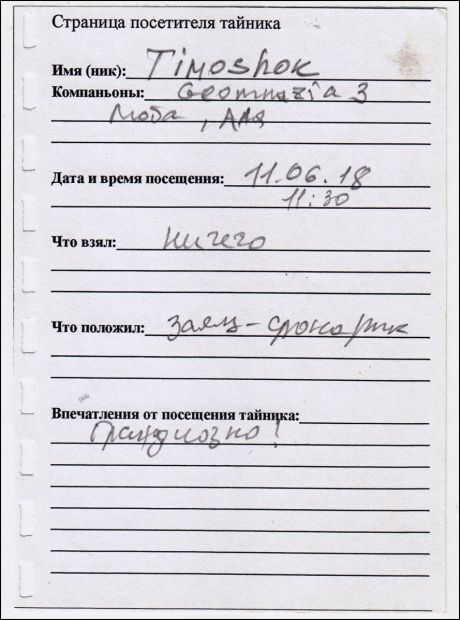 Страница посетителя тайника
Имя (ник): Timoshok
Компаньоны: Geomnazia 3
Моба, Аля
Дата и время посещения: 11.06.18
11:30
Что взял: ничего
Что положил: заяц-фонарик
Впечатления от посещения тайника:
Грандиозно!